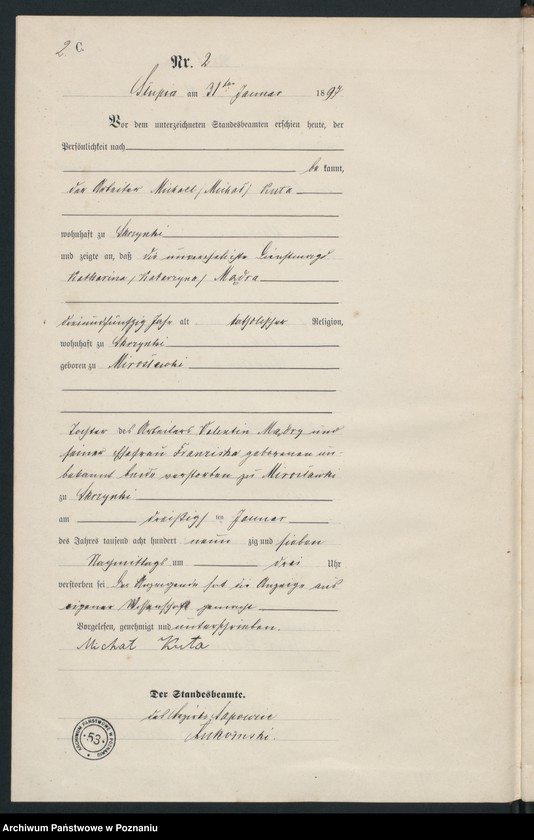 2. C.
Nr. 2
Slupia am 31ten Januar 1897
Vor dem unterzeichneten Standesbeamten erschien heute, der
Persönlichkeit nach
bekannt,
der Arbeiter Michael (Michał) Kuta
wohnhaft zu Skrzynki
und zeigte an, daß die unverehelichte Dienstmagd
Katharina (Katarzyna) Mądra
dreiundfünfzig Jahr alt katholischer Religion,
wohnhaft zu Skrzynki
geboren zu Mirosławki
Tochter des Arbeiters Valentin Mądry und
seiner Ehefrau Franziska geborenen un-
bekannt beide verstorben zu Mirosławki
zu Skrzynki
am dreißigsten Januar
des Jahres tausend acht hundert neunzig und sieben
Nachmittags um drei Uhr
verstorben sei. Der Anzeigende hat die Anzeige aus
eigener Wissenschaft gemacht
Vorgelesen, genehmigt und unterschrieben.
Michał Kuta
Der Standesbeamte.
ARCHIWUM PAŃSTWOWE W POZNANIU
53
Archiwum Państwowe w Poznaniu